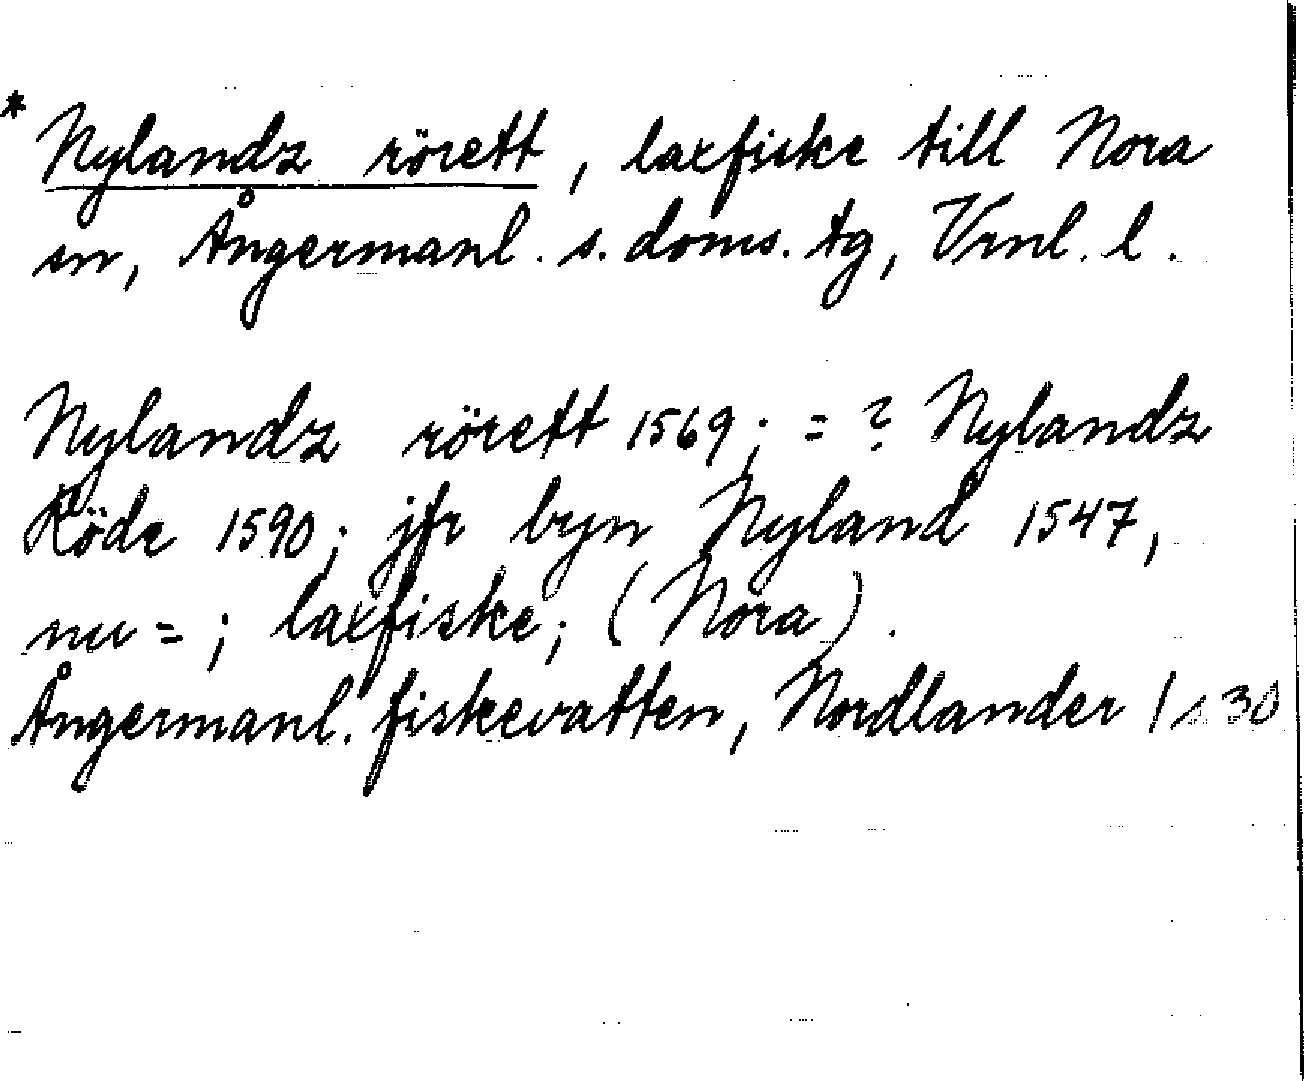 * Nylandz rörett, laxfiske till Nora
sn, Ångermanl. s. doms. tg, Vrnl. l.
Nylandz rörett 1569; = ? Nylandz
Röde 1590; jfr byn Nyland 1547,
nu = ; laxfiske; (Nora).
Ångermanl. fiskevatten, Nordlander 1 s 30